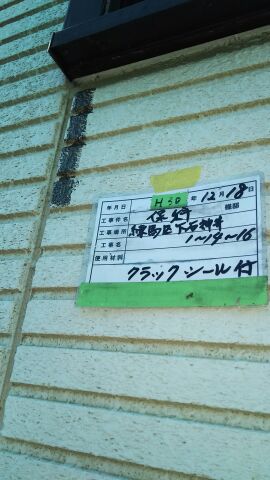 年月日 H30 年 12月 18日
工事件名 保 様邸
工事場所 練馬区下石神井
1~19~16
工事名
使用材料 クラックシール付